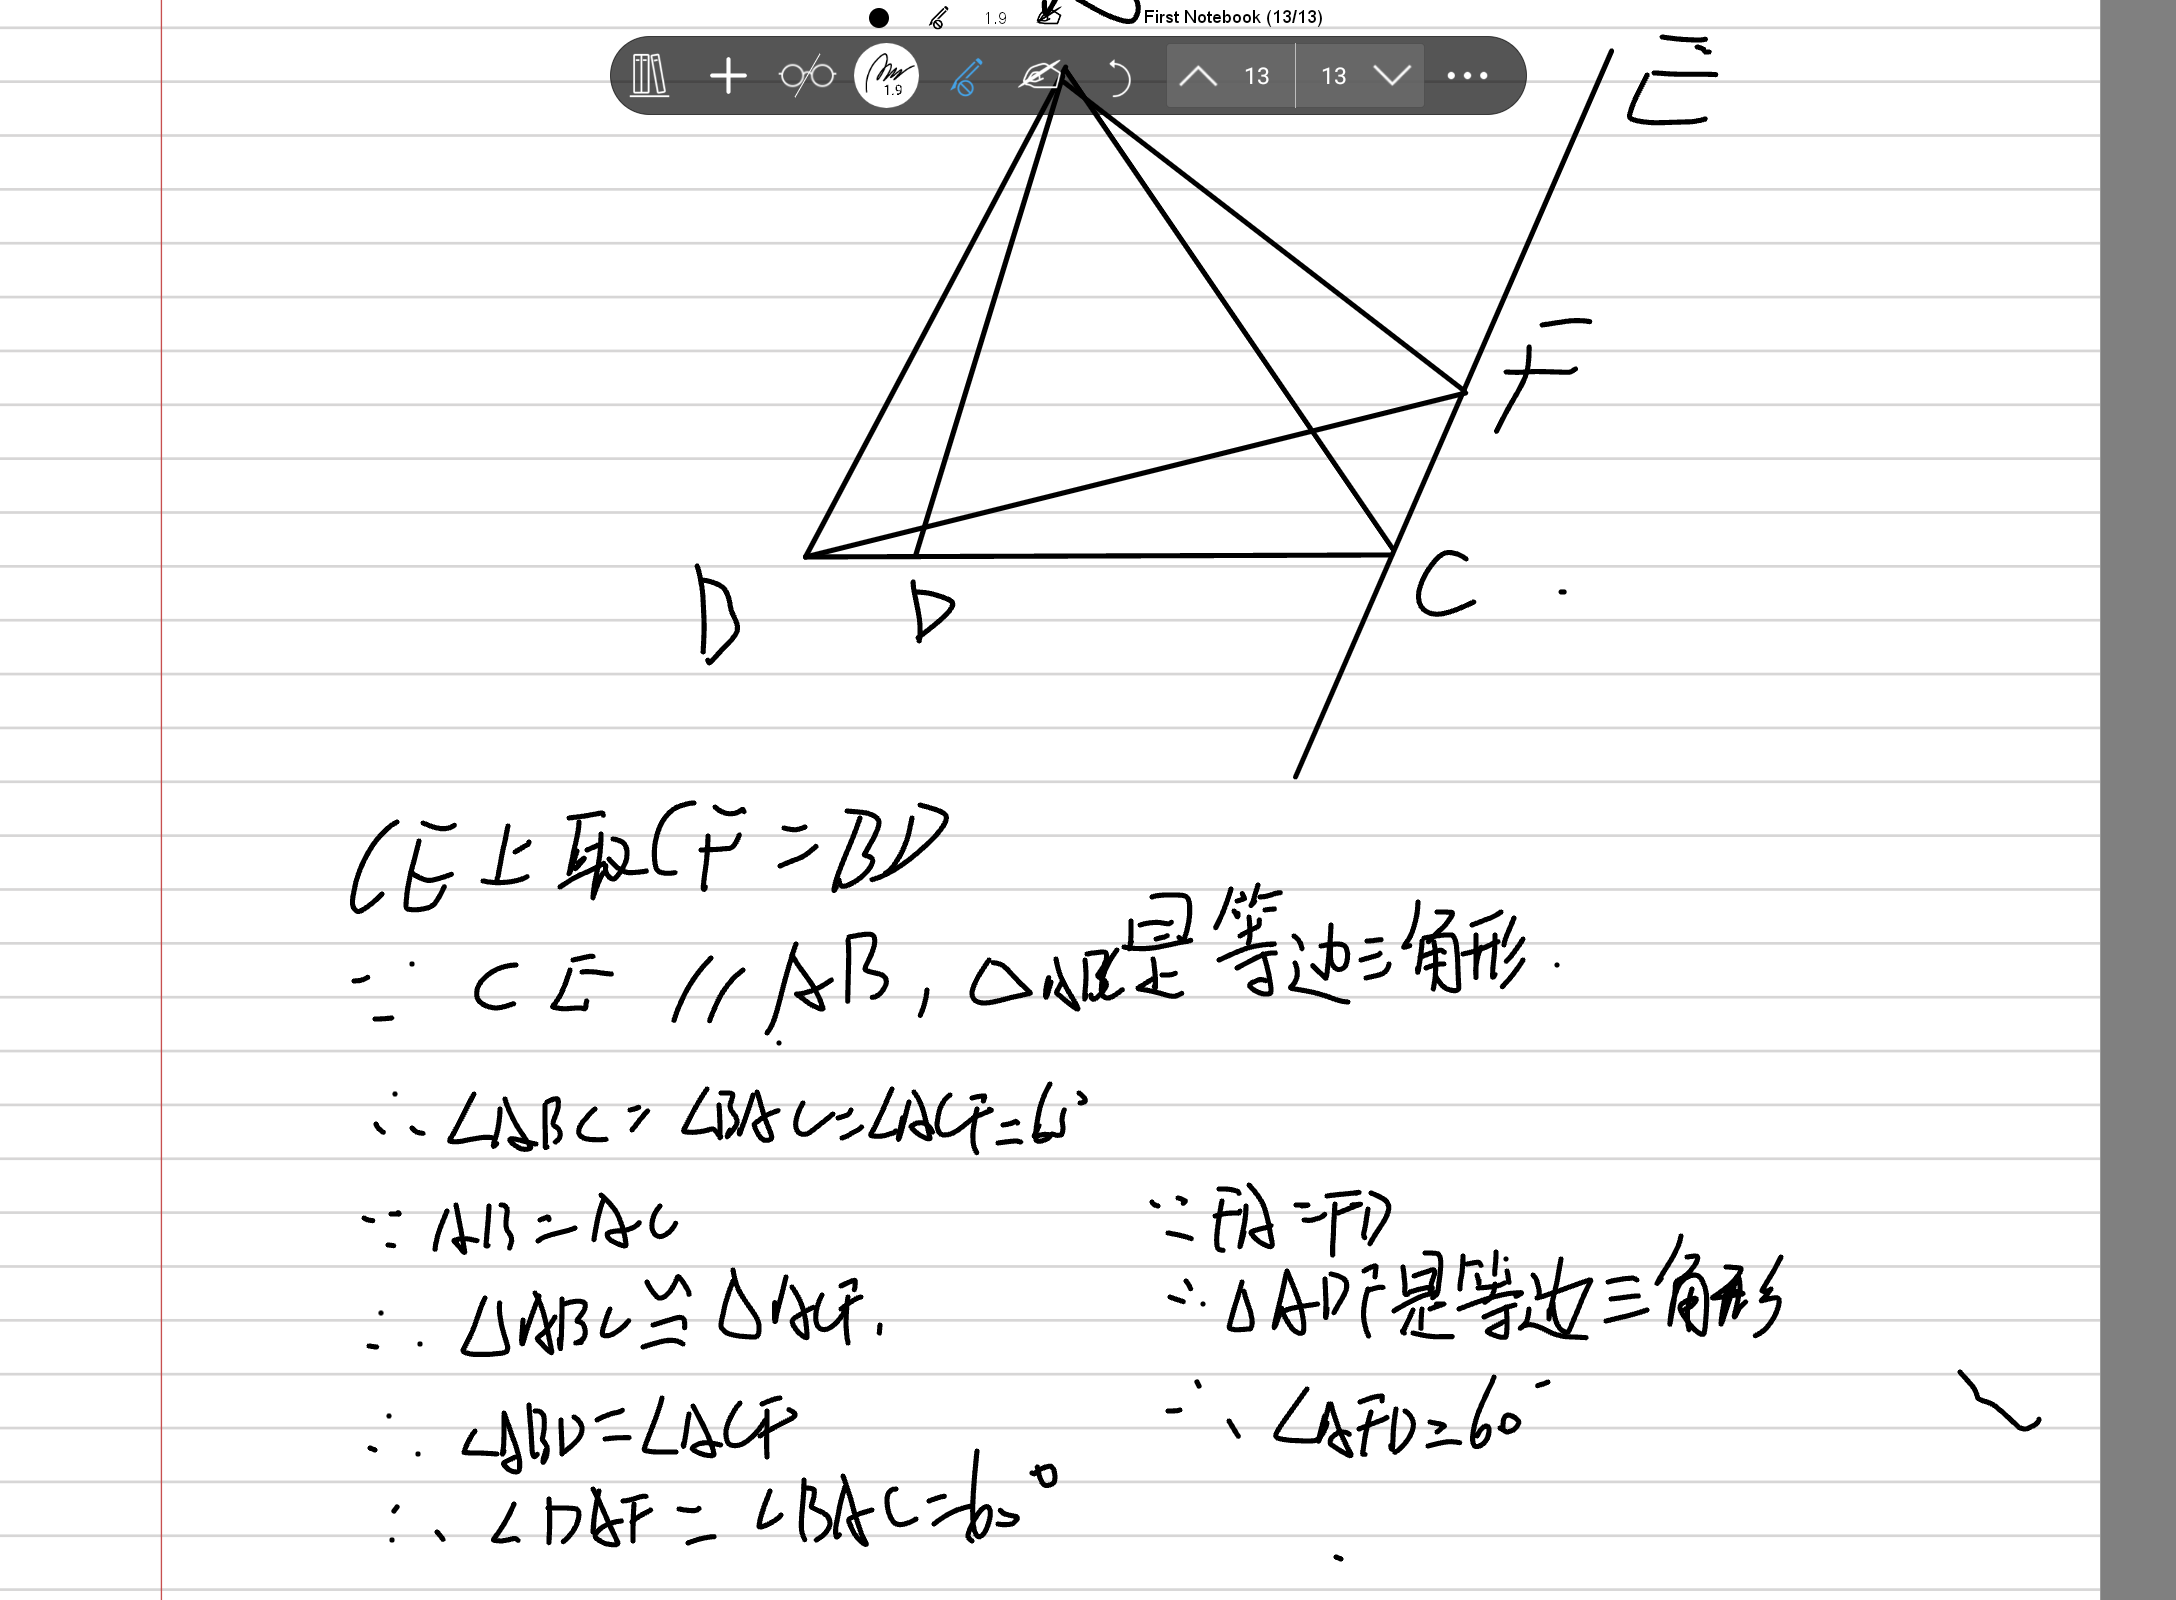 1.9 First Notebook (13/13)
1.9 13 13
E
F
B D C
CE上取CF=BD
∵ CE // AB, △ABC是等边三角形.
∴ ∠ABC = ∠BAC = ∠ACF = 60°
∵ AB = AC
∴ △ABC ≌ △ACF.
∴ ∠ABD = ∠ACF
∴ ∠DAF = ∠BAC = 60°
∵ FA = FD
∴ △ADF是等边三角形
∴ ∠AFD = 60°